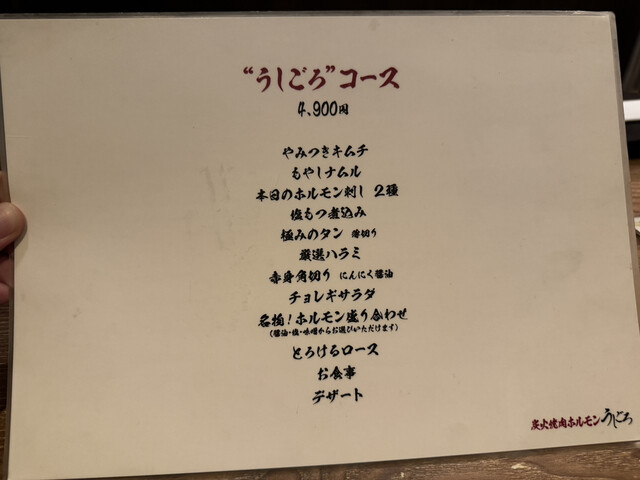 “うしごろ”コース
4,900円
やみつきキムチ
もやしナムル
本日のホルモン刺し 2種
塩もつ煮込み
極みのタン 薄切り
厳選ハラミ
赤身角切り にんにく醤油
チョレギサラダ
名物!ホルモン盛り合わせ
(醤油・塩・味噌からお選びいただけます)
とろけるロース
お食事
デザート
炭火焼肉ホルモン うしごろ